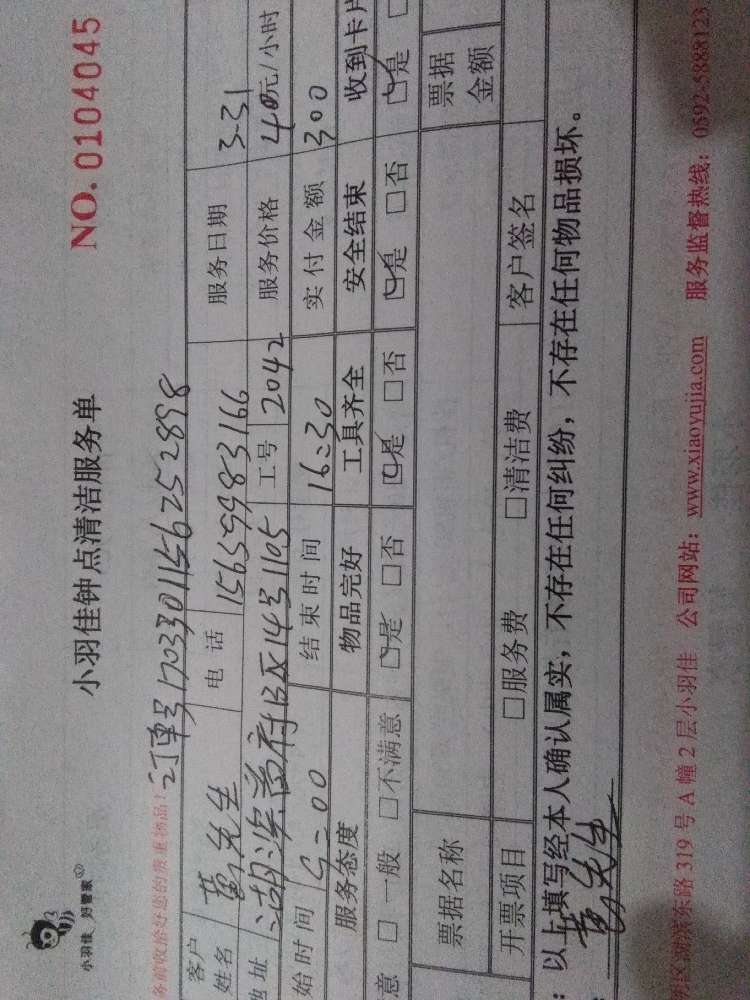 小羽佳 好管家
小羽佳钟点清洁服务单 NO. 0104045
务前收拾好您的贵重物品! 订单号1703301156252898
客户姓名 黄先生 电话 15659983166 服务日期 3-31
地址 14号1105 工号 2042 服务价格 40元/小时
始时间 9:00 结束时间 16:30 实付金额 300
服务态度 物品完好 工具齐全 安全结束 收到卡片
意 □ 一般 □不满意 ☑是 □否 ☑是 □否 ☑是 □否 ☑是 □
票据名称 票据金额
开票项目 □服务费 □清洁费 客户签名
: 以上填写经本人确认属实,不存在任何纠纷,不存在任何物品损坏。
黄先生
明区湖滨东路 319 号 A 幢 2 层小羽佳 公司网站: www.xiaoyujia.com 服务监督热线: 0592-5888123